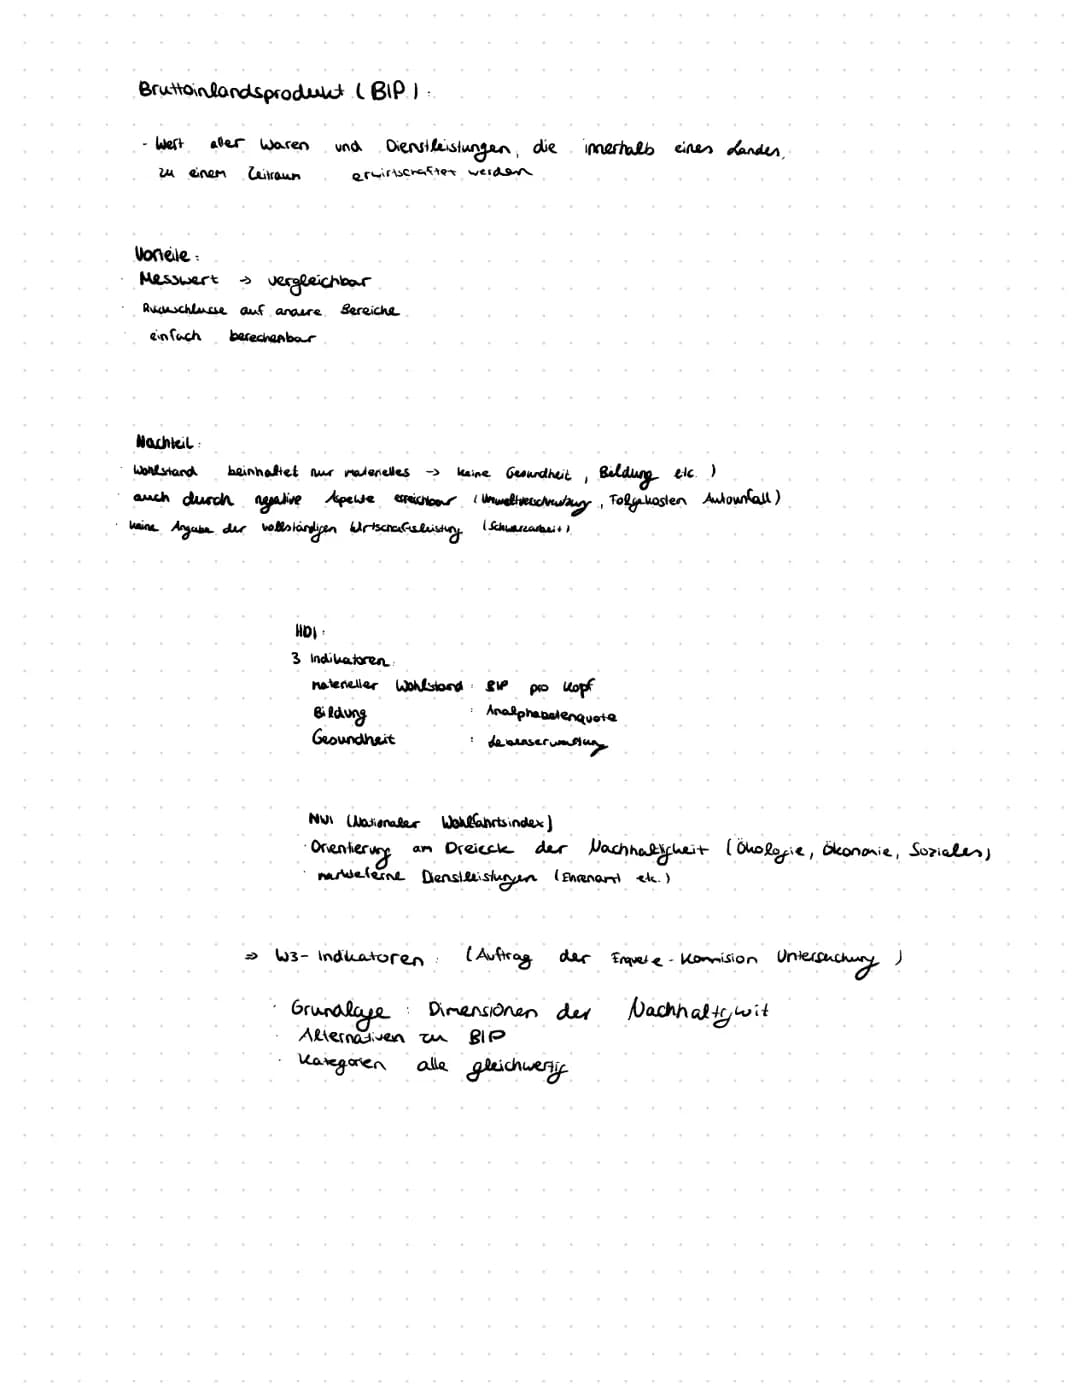 Bruttoinlandsprodukt (BIP):
- Wert aller Waren und Dienstleistungen, die innerhalb eines Landes,
zu einem Zeitraum erwirtschaftet werden
Vorteile:
· Messwert → vergleichbar
· Rückschlüsse auf andere Bereiche
· einfach berechenbar
Nachteil:
· Wohlstand beinhaltet nur materielles → keine Gesundheit, Bildung etc.)
· auch durch negative Aspekte erreichbar (Umweltverschmutzung, Folgekosten Autounfall)
· keine Angabe der vollständigen Wirtschaftsleistung (Schwarzarbeit)
HDI:
3 Indikatoren:
materieller Wohlstand: BIP pro Kopf
Bildung : Analphabetenquote
Gesundheit : Lebenserwartung
NWI (Nationaler Wohlfahrtsindex)
· Orientierung am Dreieck der Nachhaltigkeit (Ökologie, Ökonomie, Soziales)
· marktferne Dienstleistungen (Ehrenamt etc.)
⇒ W3-Indikatoren: (Auftrag der Enquete-Kommision Untersuchung)
· Grundlage: Dimensionen der Nachhaltigkeit
· Alternativen zu BIP
· Kategorien alle gleichwertig